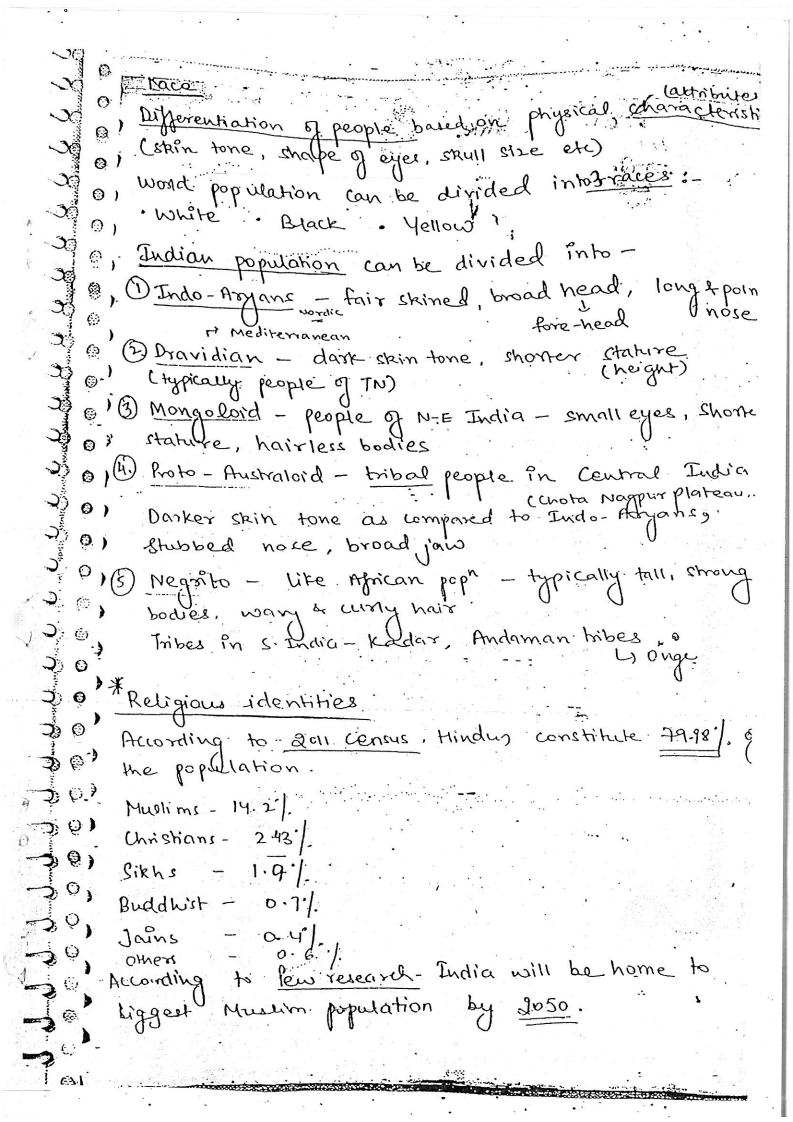 Race
(attributes
Differentiation of people based on physical characteristi
(skin tone, shape of eyes, skull size etc)
World population can be divided into 3 races :-
• White • Black • Yellow
Indian population can be divided into -
① Indo-Aryans - fair skined, broad head, long & poin
nordic ↓ nose
→ Mediterranean fore-head
② Dravidian - dark skin tone, shorter stature
(typically people of TN) (height)
③ Mongoloid - people of N-E India - small eyes, shorte
stature, hairless bodies
4. Proto-Australoid - tribal people in Central India
(Chota Nagpur plateau..
Darker skin tone as compared to Indo-Aryans,
stubbed nose, broad jaw
⑤ Negrito - like African popⁿ - typically tall, strong
bodies, wavy & curly hair
Tribes in S. India - Kadar, Andaman tribes
↳ Onge
* Religious identities
According to 2011 Census, Hindus constitute 79.98% of
the population.
Muslims - 14.2%
Christians - 2.43%
Sikhs - 1.9%
Buddhist - 0.7%
Jains - 0.4%
others - 0.6%
According to Pew research - India will be home to
biggest Muslim population by 2050.